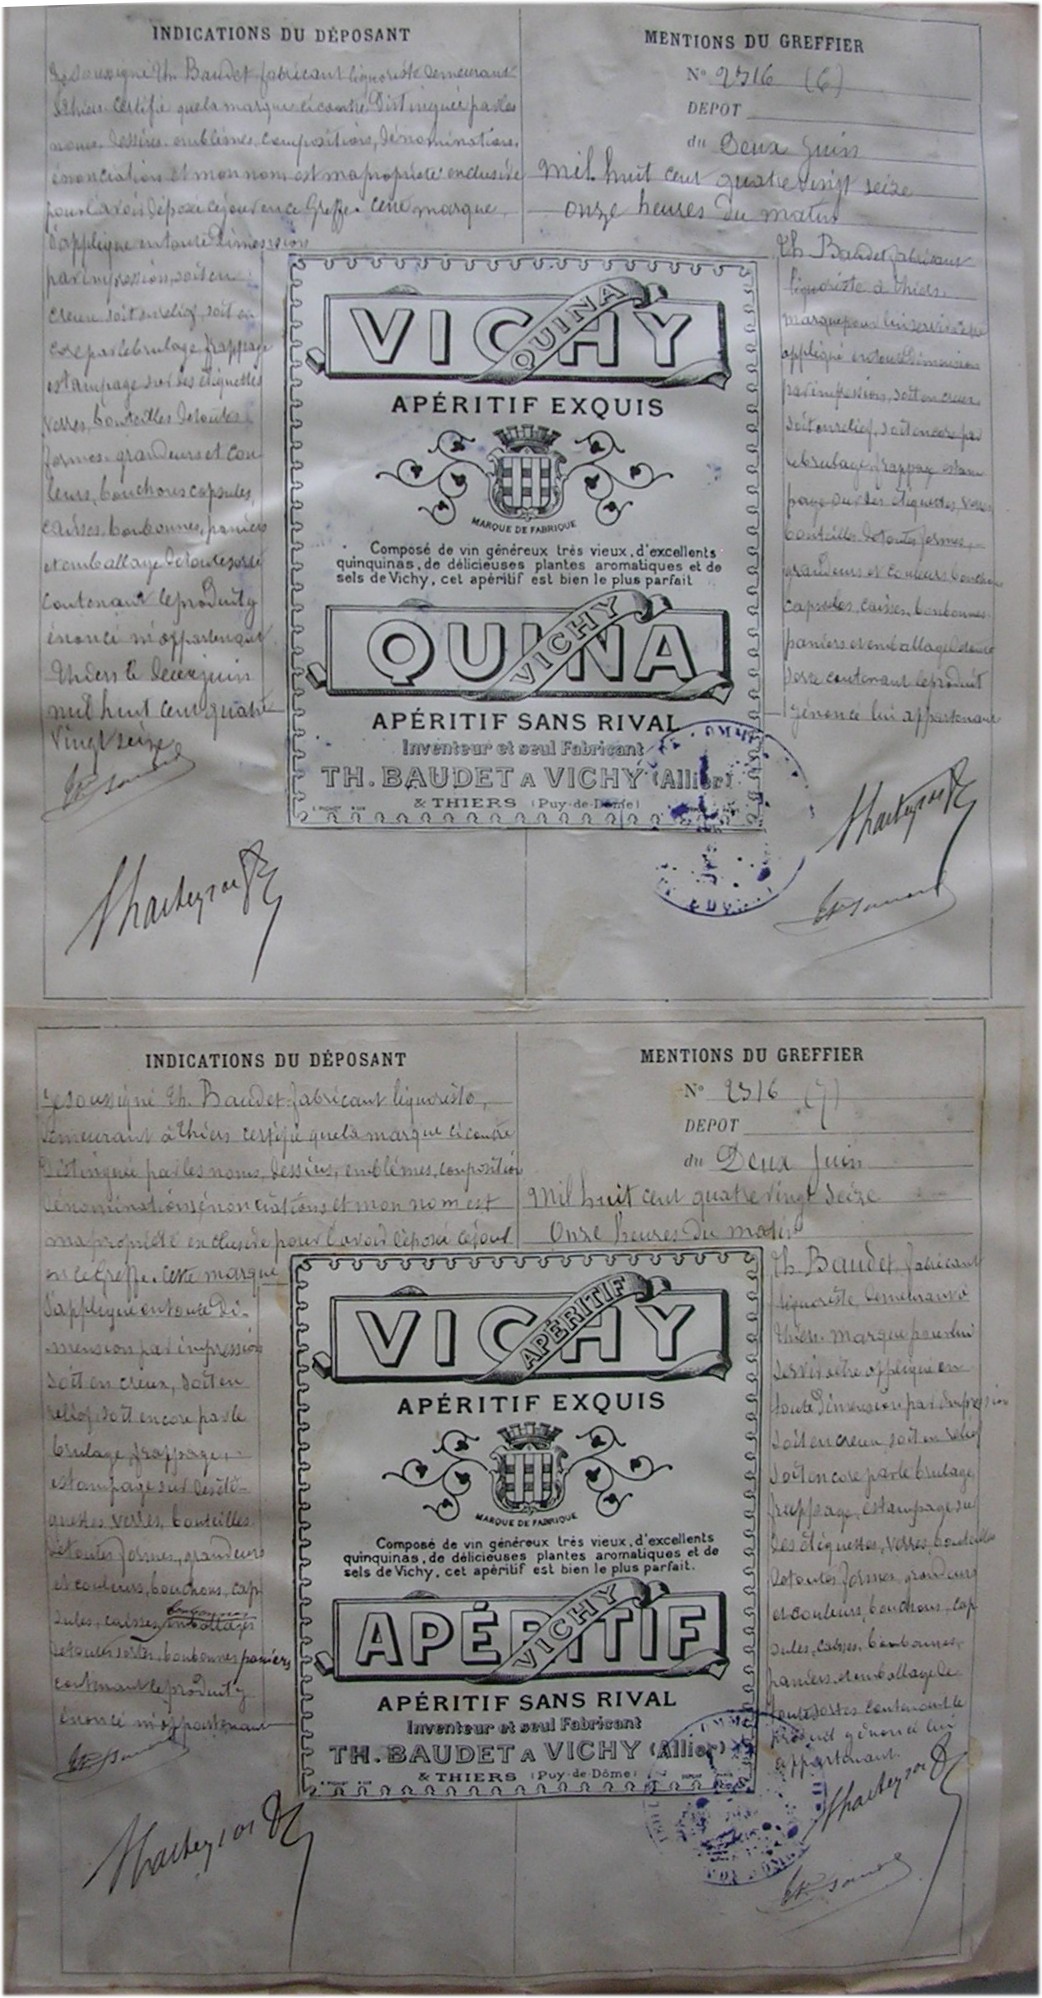 INDICATIONS DU DÉPOSANT
Je soussigné Th. Baudet fabricant liquoriste demeurant
à Thiers certifie que la marque ci contre Distinguée par les
noms, dessins, emblêmes, compositions, dénominations,
énonciations et mon nom est ma propriété exclusive
pour l'avoir déposée ce jour en ce Greffe. Cette marque
s'applique en toute Dimension
par impression, soit en
creux soit en relief, soit en
core par le brulage, frappage
estampage sur des étiquettes
verres, bouteilles de toutes
formes, grandeurs et cou
leurs, bouchons capsules,
caisses, bonbonnes, paniers
et emballage de toute sorte
contenant le produit y
énoncé m'appartenant
Thiers le deux juin
mil huit cent quatre
vingt seize
MENTIONS DU GREFFIER
N° 2316 (6)
DEPOT
du Deux Juin
Mil huit cent quatre vingt seize
onze heures du matin
Th. Baudet fabricant
liquoriste à Thiers.
marque pour lui servir à être
appliqué en toute Dimension
par impression, soit en creux
soit en relief, soit encore par
le brulage, frappage estam
page sur des étiquettes, verres
bouteilles de toutes formes,
grandeurs et couleurs bouchons
capsules, caisses, bonbonnes
paniers et emballage de toute
sorte contenant le produit
y énoncé lui appartenant
VICHY
QUINA
APÉRITIF EXQUIS
MARQUE DE FABRIQUE
Composé de vin généreux très vieux, d'excellents
quinquinas, de délicieuses plantes aromatiques et de
sels de Vichy, cet apéritif est bien le plus parfait
QUINA
VICHY
APÉRITIF SANS RIVAL
Inventeur et seul Fabricant
TH. BAUDET A VICHY (Allier)
& THIERS (Puy-de-Dôme)
INDICATIONS DU DÉPOSANT
Je soussigné Th. Baudet fabricant liquoriste,
demeurant à Thiers certifie que la marque ci contre
Distinguée par les noms, dessins, emblêmes, composition
dénominations, énonciations et mon nom est
ma propriété exclusive pour l'avoir déposée ce jour
en ce Greffe. Cette marque
s'applique en toute Di-
mension par impression
soit en creux, soit en
relief soit encore par le
brulage, frappage,
estampage sur des éti-
quettes verres, bouteilles
de toutes formes, grandeurs
et couleurs, bouchons, cap
sules, caisses, emballages
de toutes sortes, bonbonnes paniers
contenant le produit y
énoncé m'appartenant
MENTIONS DU GREFFIER
N° 2316 (7)
DEPOT
du Deux Juin
Mil huit cent quatre vingt seize
Onze heures du matin
Th. Baudet, fabricant
liquoriste demeurant à
Thiers. marque pour lui
servir à être appliqué en
toute Dimension par impression
soit en creux soit en relief
soit encore par le brulage,
frappage, estampage sur
des étiquettes, verres, bouteilles
de toutes formes, grandeurs
et couleurs, bouchons, cap
sules, caisses, bonbonnes,
paniers, et emballage de
toutes sortes contenant le
produit y énoncé lui
appartenant.
VICHY
APÉRITIF
APÉRITIF EXQUIS
MARQUE DE FABRIQUE
Composé de vin généreux très vieux, d'excellents
quinquinas, de délicieuses plantes aromatiques et de
sels de Vichy, cet apéritif est bien le plus parfait.
APÉRITIF
VICHY
APÉRITIF SANS RIVAL
Inventeur et seul Fabricant
TH. BAUDET A VICHY (Allier)
& THIERS (Puy-de-Dôme)